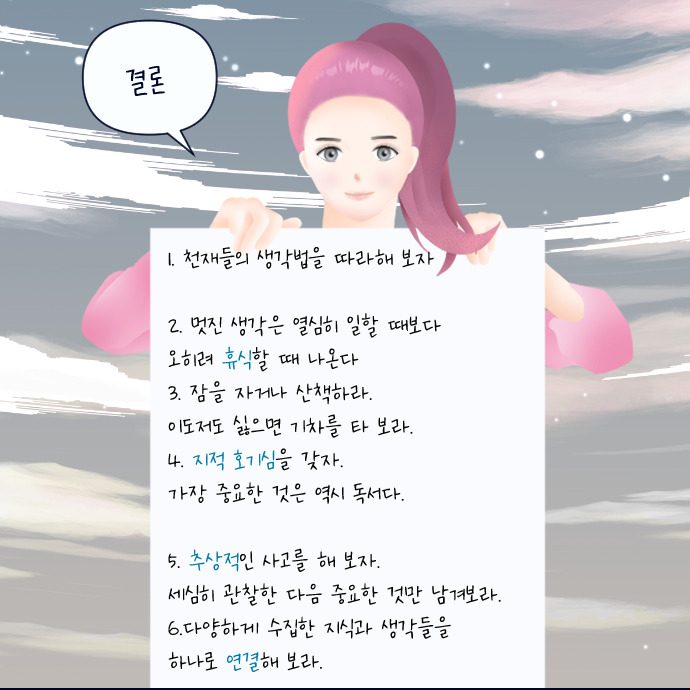 결론
1. 천재들의 생각법을 따라해 보자
2. 멋진 생각은 열심히 일할 때보다
오히려 휴식할 때 나온다
3. 잠을 자거나 산책하라.
이도저도 싫으면 기차를 타 보라.
4. 지적 호기심을 갖자.
가장 중요한 것은 역시 독서다.
5. 추상적인 사고를 해 보자.
세심히 관찰한 다음 중요한 것만 남겨보라.
6.다양하게 수집한 지식과 생각들을
하나로 연결해 보라.